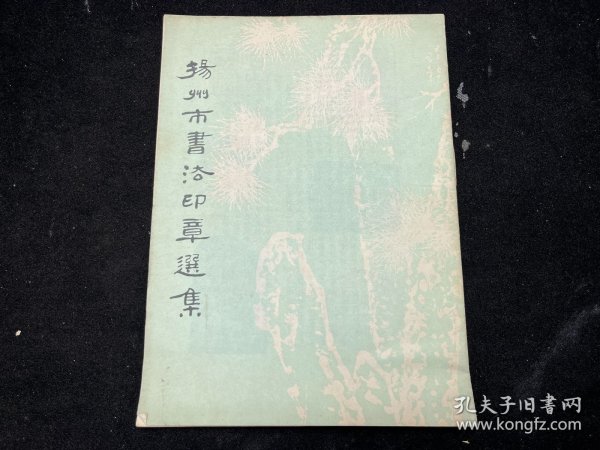 揚州市書法印章選集
孔夫子旧書网
www.kongfz.com